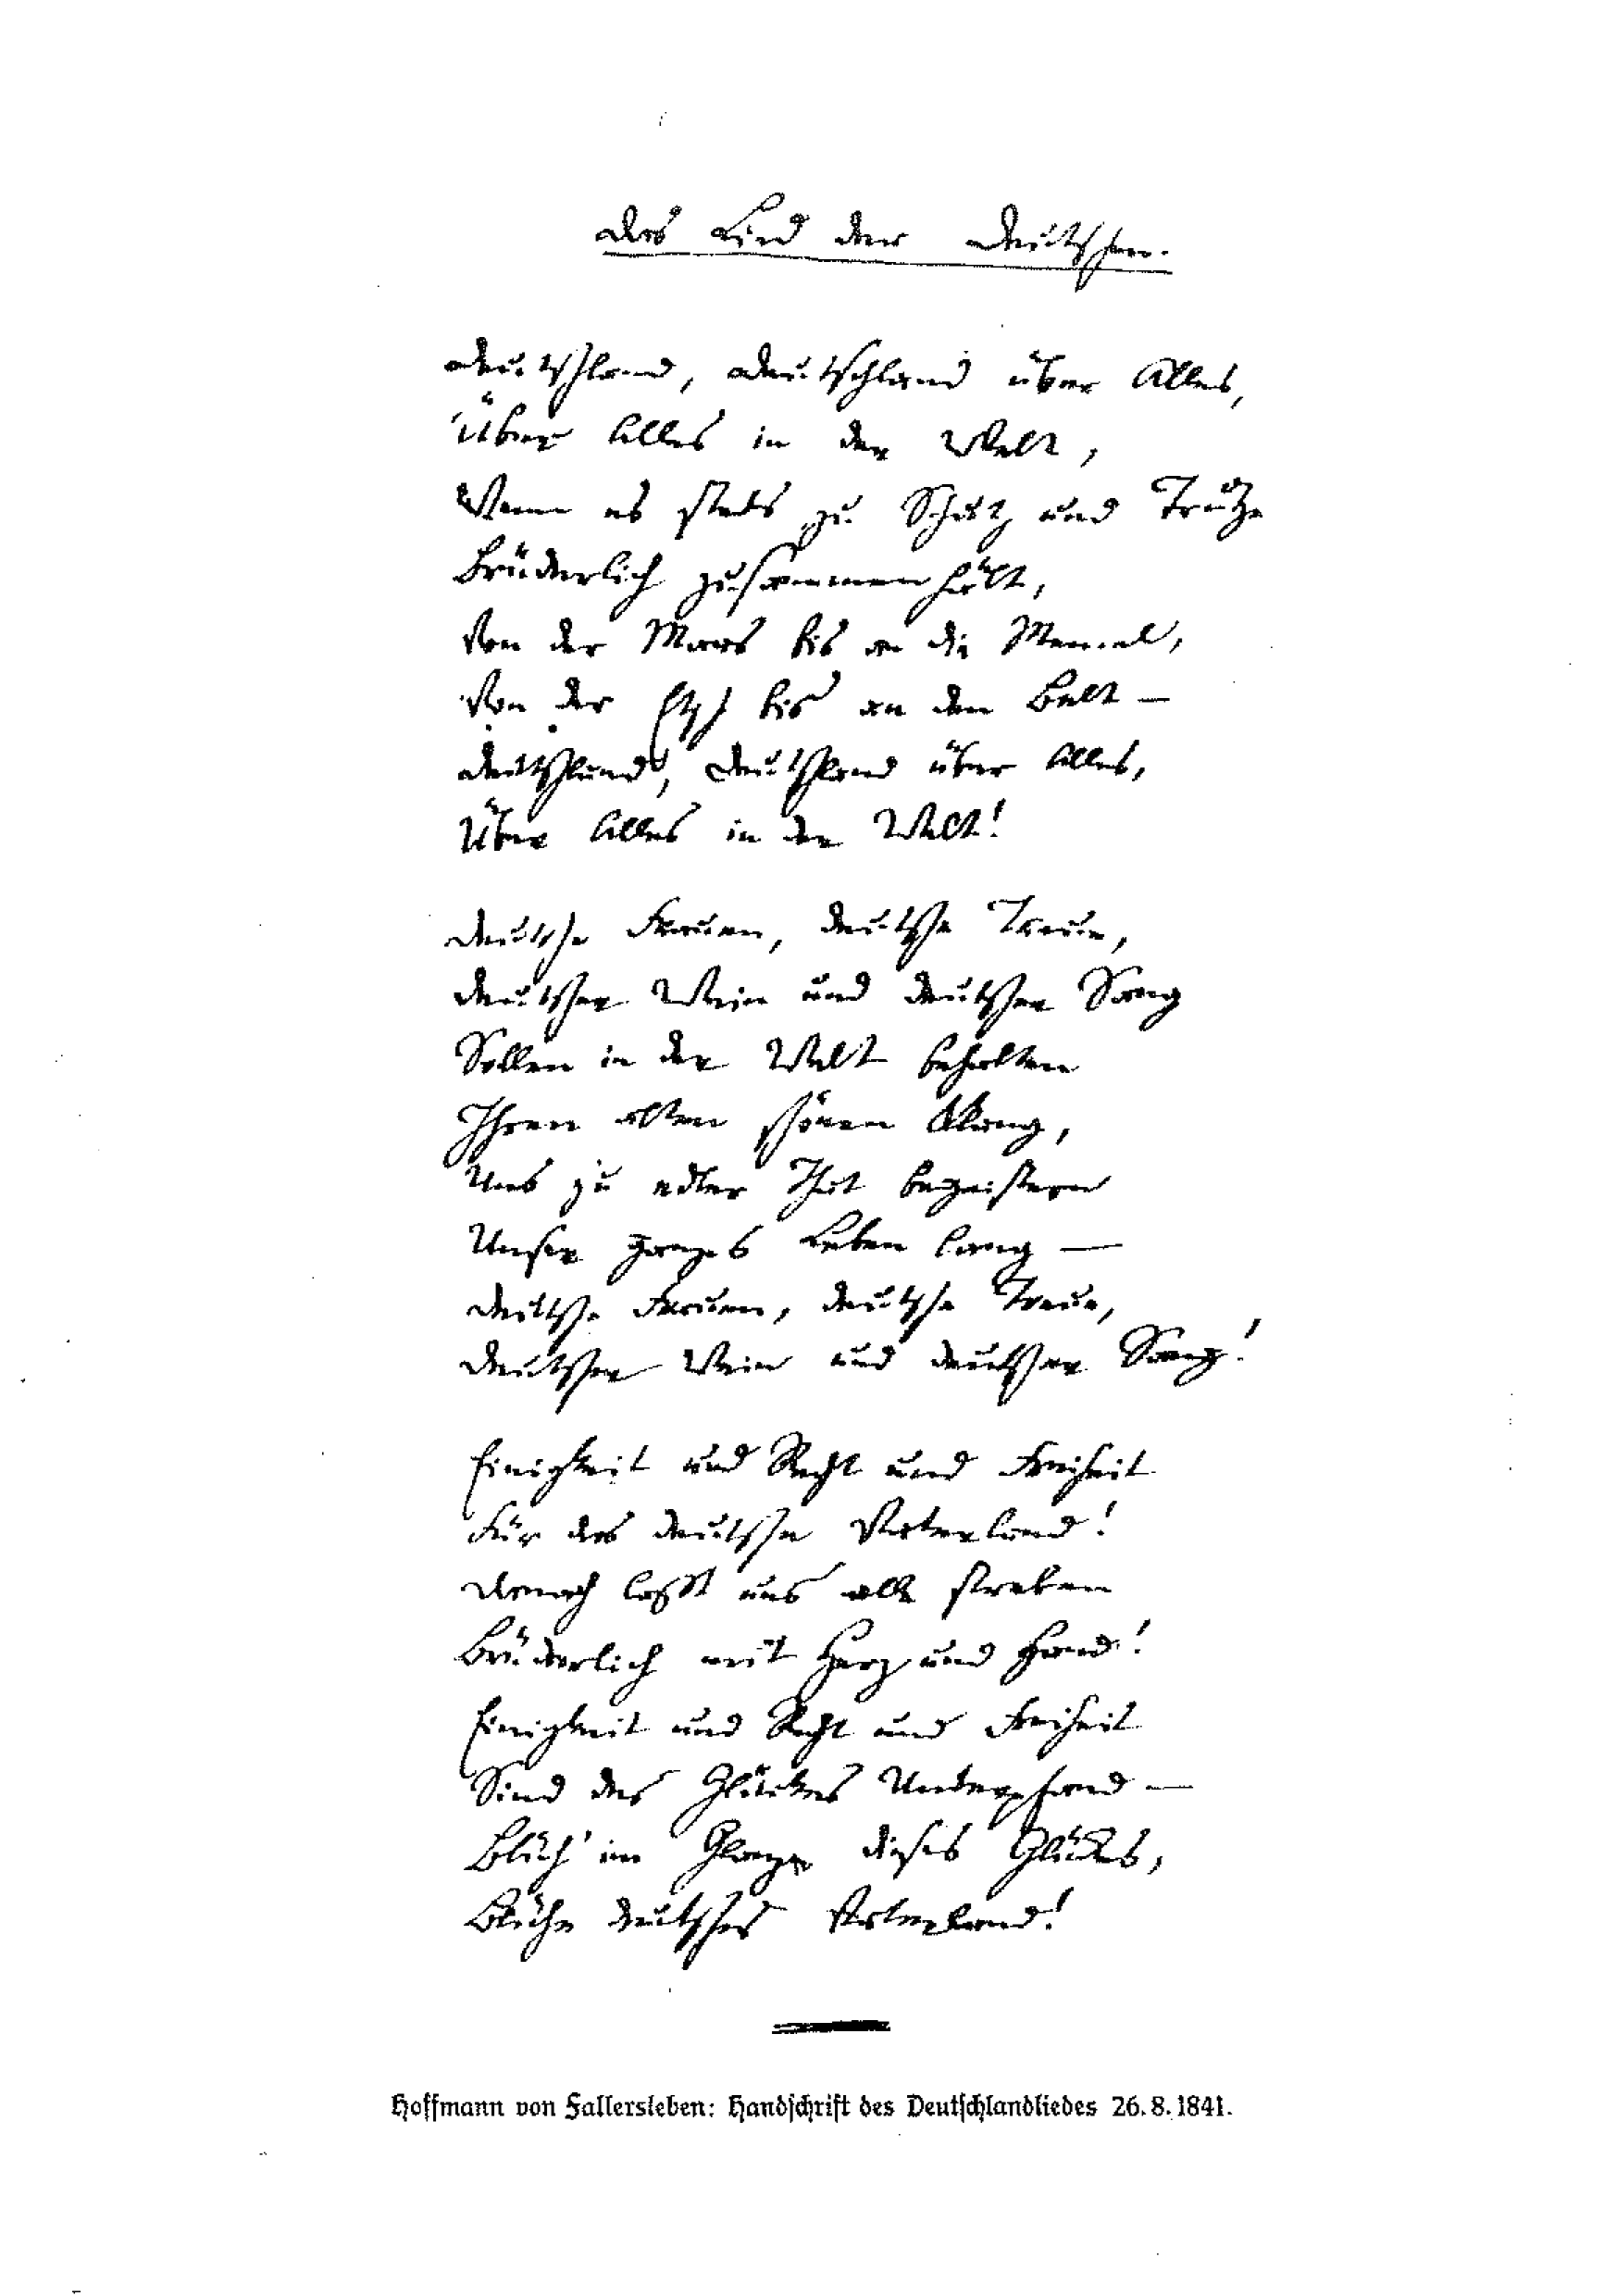 Das Lied der Deutschen.
Deutschland, Deutschland über Alles,
Über Alles in der Welt,
Wenn es stets zu Schutz und Trutze
Brüderlich zusammenhält,
Von der Maas bis an die Memel,
Von der Etsch bis an den Belt –
Deutschland, Deutschland über Alles,
Über Alles in der Welt!
Deutsche Frauen, deutsche Treue,
Deutscher Wein und deutscher Sang
Sollen in der Welt behalten
Ihren alten schönen Klang,
Uns zu edler That begeistern
Unser ganzes Leben lang –
Deutsche Frauen, deutsche Treue,
Deutscher Wein und deutscher Sang!
Einigkeit und Recht und Freiheit
Für das deutsche Vaterland!
Danach lasst uns alle streben
Brüderlich mit Herz und Hand!
Einigkeit und Recht und Freiheit
Sind des Glückes Unterpfand –
Blüh' im Glanze dieses Glückes,
Blühe deutsches Vaterland!
Hoffmann von Fallersleben: Handschrift des Deutschlandliedes 26.8.1841.